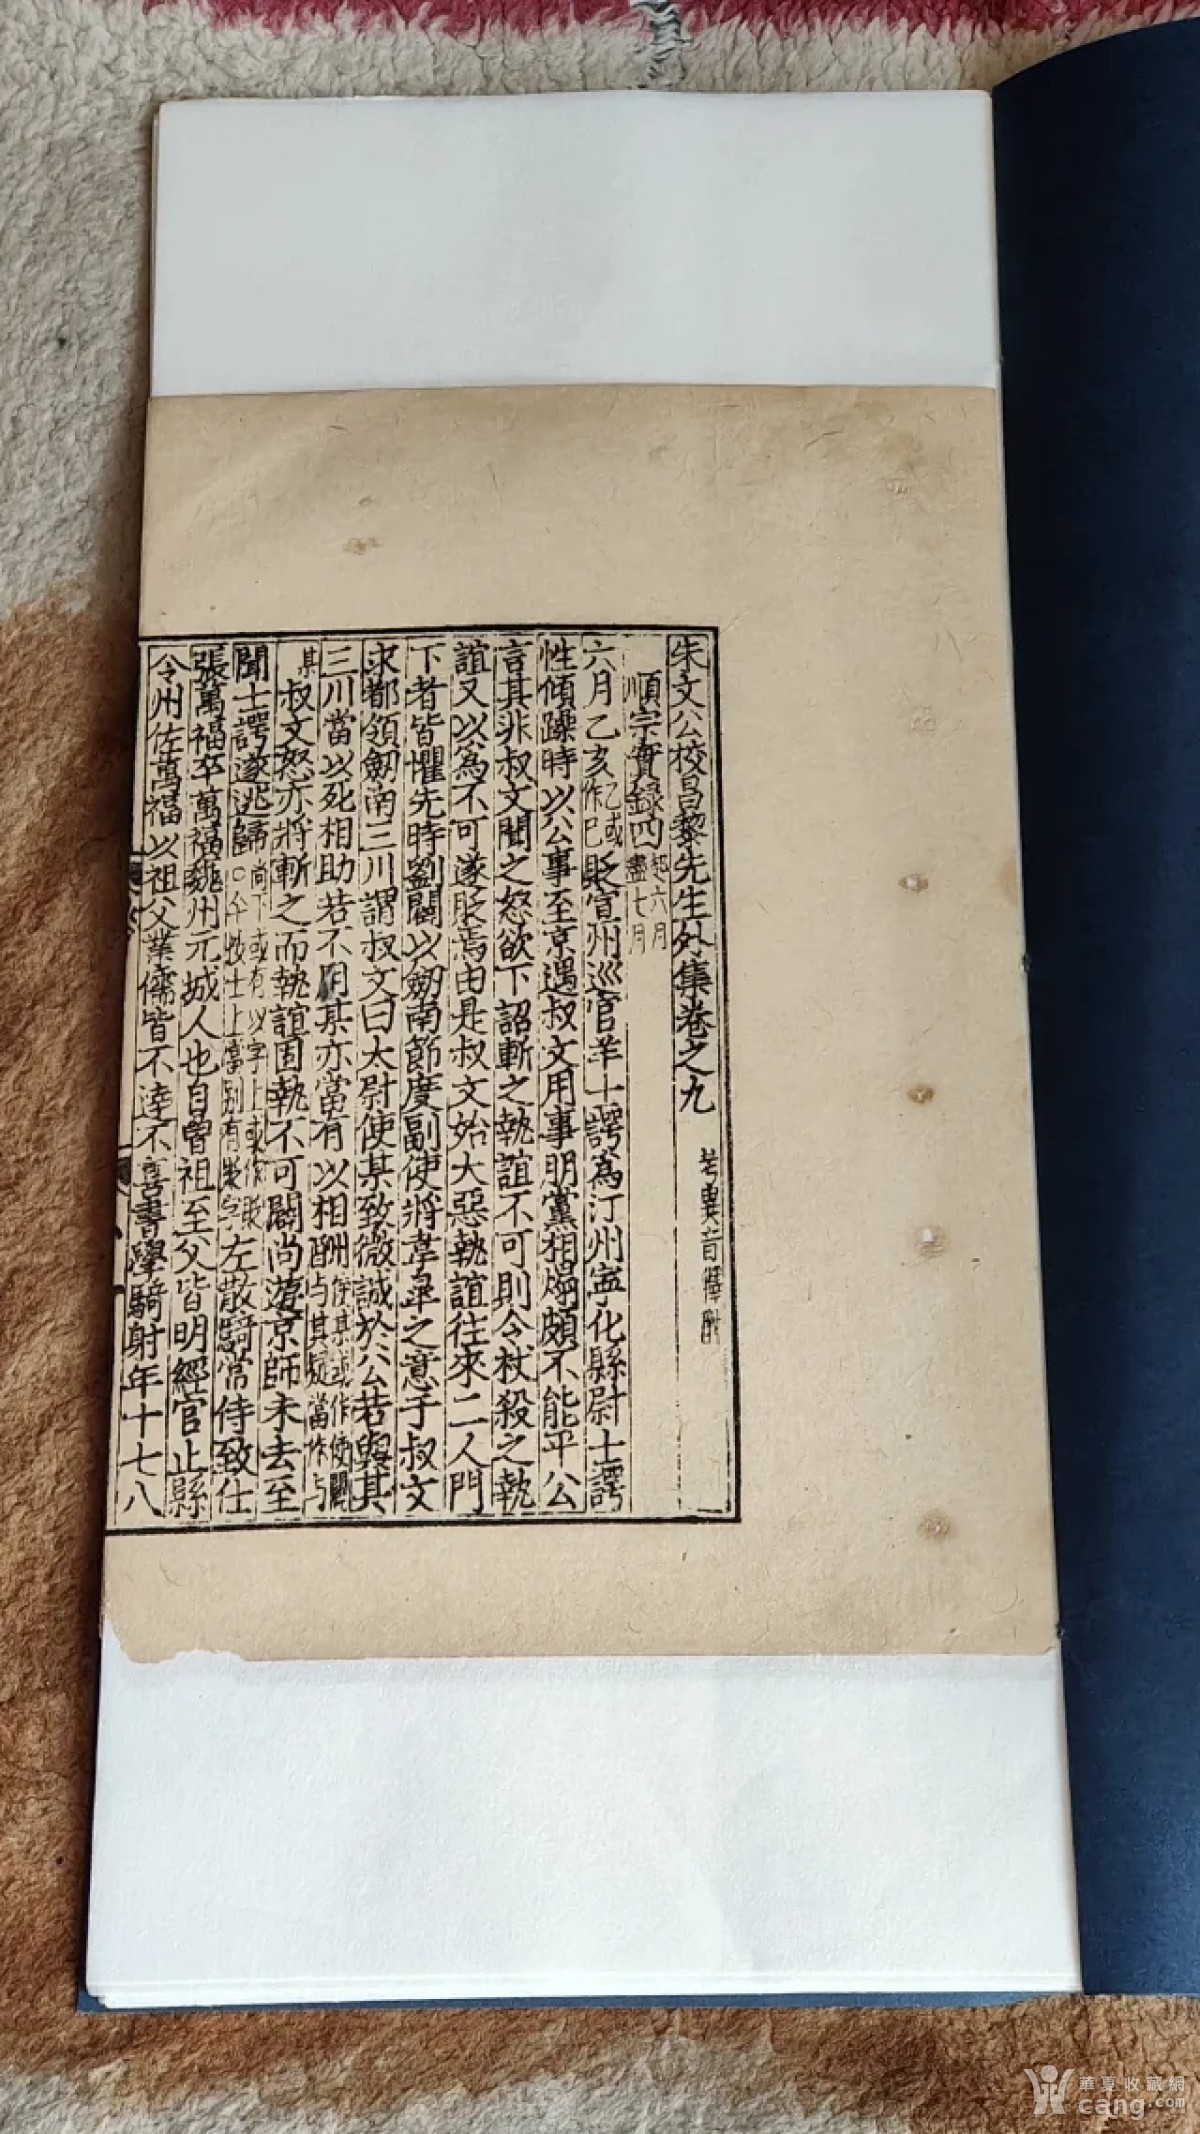 朱文公校昌黎先生外集卷之九 考異音釋附
順宗實錄四 起六月盡七月
六月乙亥 乙或作己 貶宣州巡官羊士諤為汀州寧化縣尉士諤
性傾躁時以公事至京遇叔文用事朋黨相煽頗不能平公
言其非叔文聞之怒欲下詔斬之執誼不可則令杖殺之執
誼又以為不可遂貶焉由是叔文始大惡執誼往來二人門
下者皆懼先時劉闢以劒南節度副使將韋皐之意于叔文
求都領劒南三川謂叔文曰太尉使某致微誠於公若與其
三川當以死相助若不用某亦當有以相酬 使某或作使闢与其疑當作与
某 叔文怒亦將斬之而執誼固執不可闢尚遊京師未去至
聞士諤遂逃歸 尚下或有以字上或作貶 士上當別有 字 左散騎常侍致仕
張萬福卒萬福魏州元城人也自曾祖至父皆明經官止縣
令州佐萬福以祖父業儒皆不達不喜書學騎射年十七八
華夏收藏網
cang.com